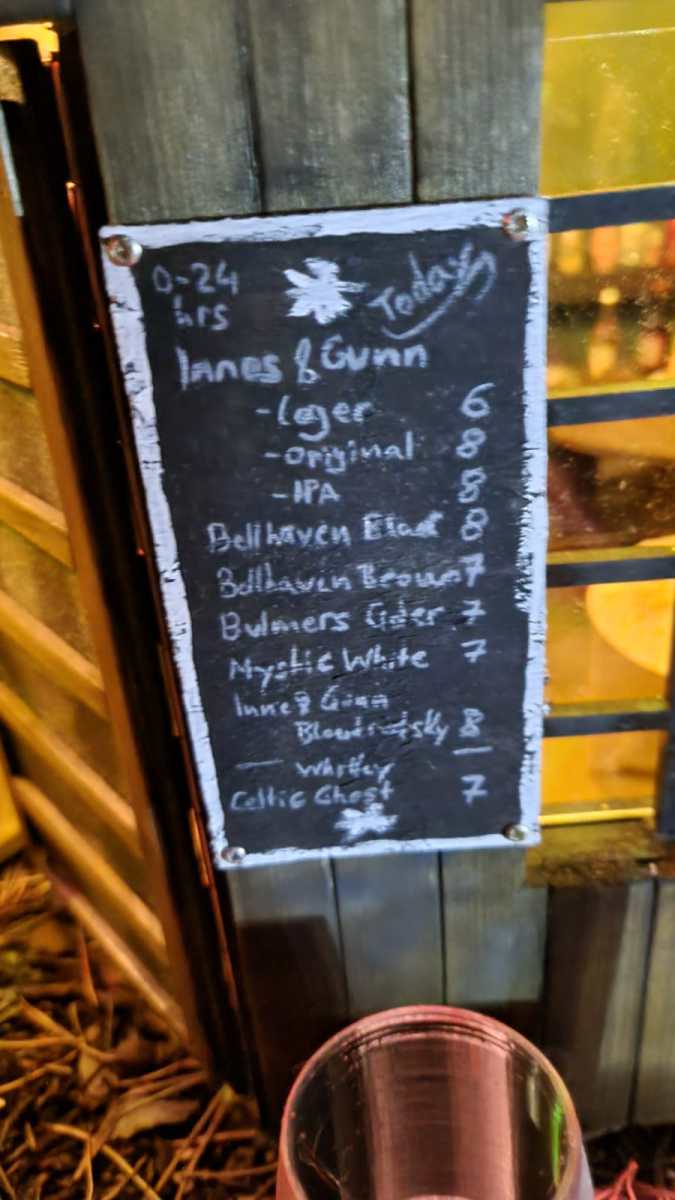 0-24 Today
hrs
Innes & Gunn
- Lager 6
- Original 8
- IPA 8
Bellhaven 8
Bellhaven Brown 7
Bulmers Cider 7
Mystic White 7
Innes & Gunn
8
Celtic Ghost 7